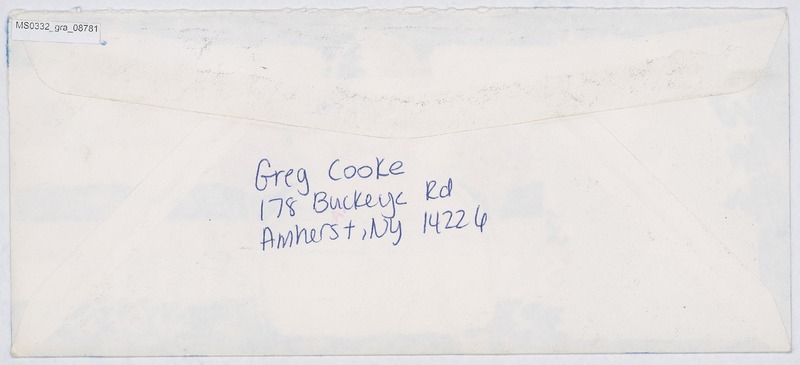 MS0332_gra_08781
Greg Cooke
178 Buckeye Rd
Amherst, NY 14226